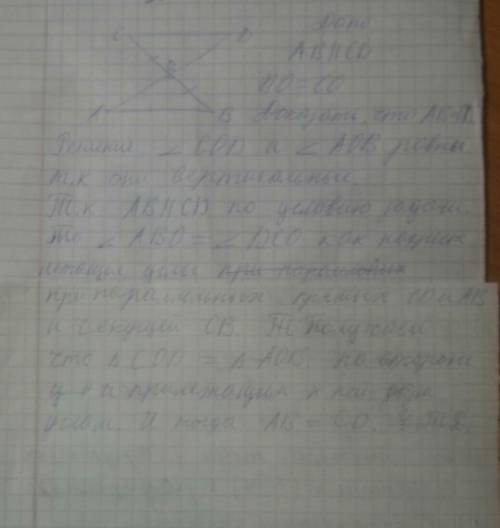 C D Дано
O AB||CD
BO=CO
A B Доказать, что AB=
Решение. ∠COD и ∠AOB равны
т.к они вертикальные.
Т.к AB||CD по условию задачи,
то ∠ABO = ∠DCO как накрест
лежащие углы при параллельных
при параллельных прямых CD и AB
и секущей CB. Получаем
что ΔCOD = ΔAOB по стороне
и прилежащим к ней
углам. И тогда AB = CD.